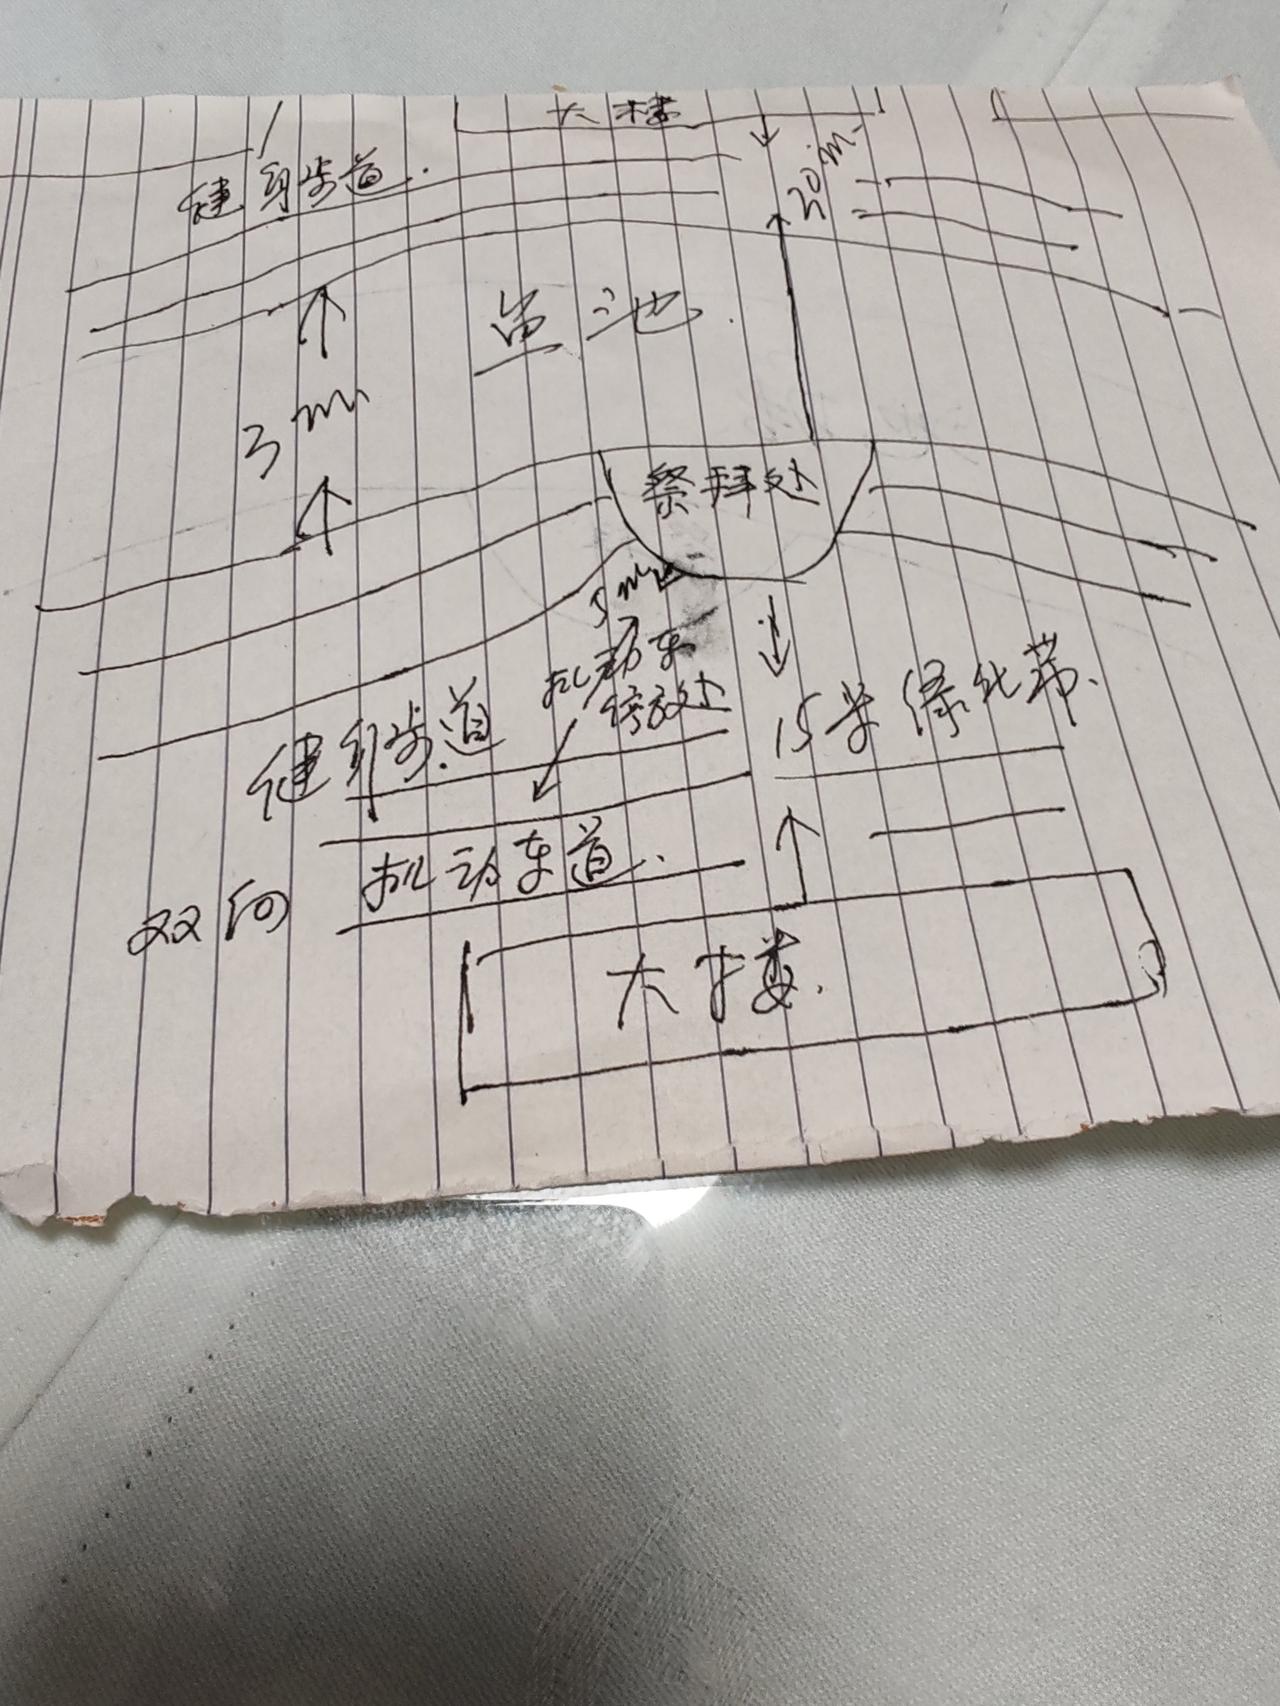 大楼
健身步道.
30m
鱼池.
3m
祭拜处
5m
机动车
停放处
15米绿化带.
健身步道
双向 机动车道.
大楼.